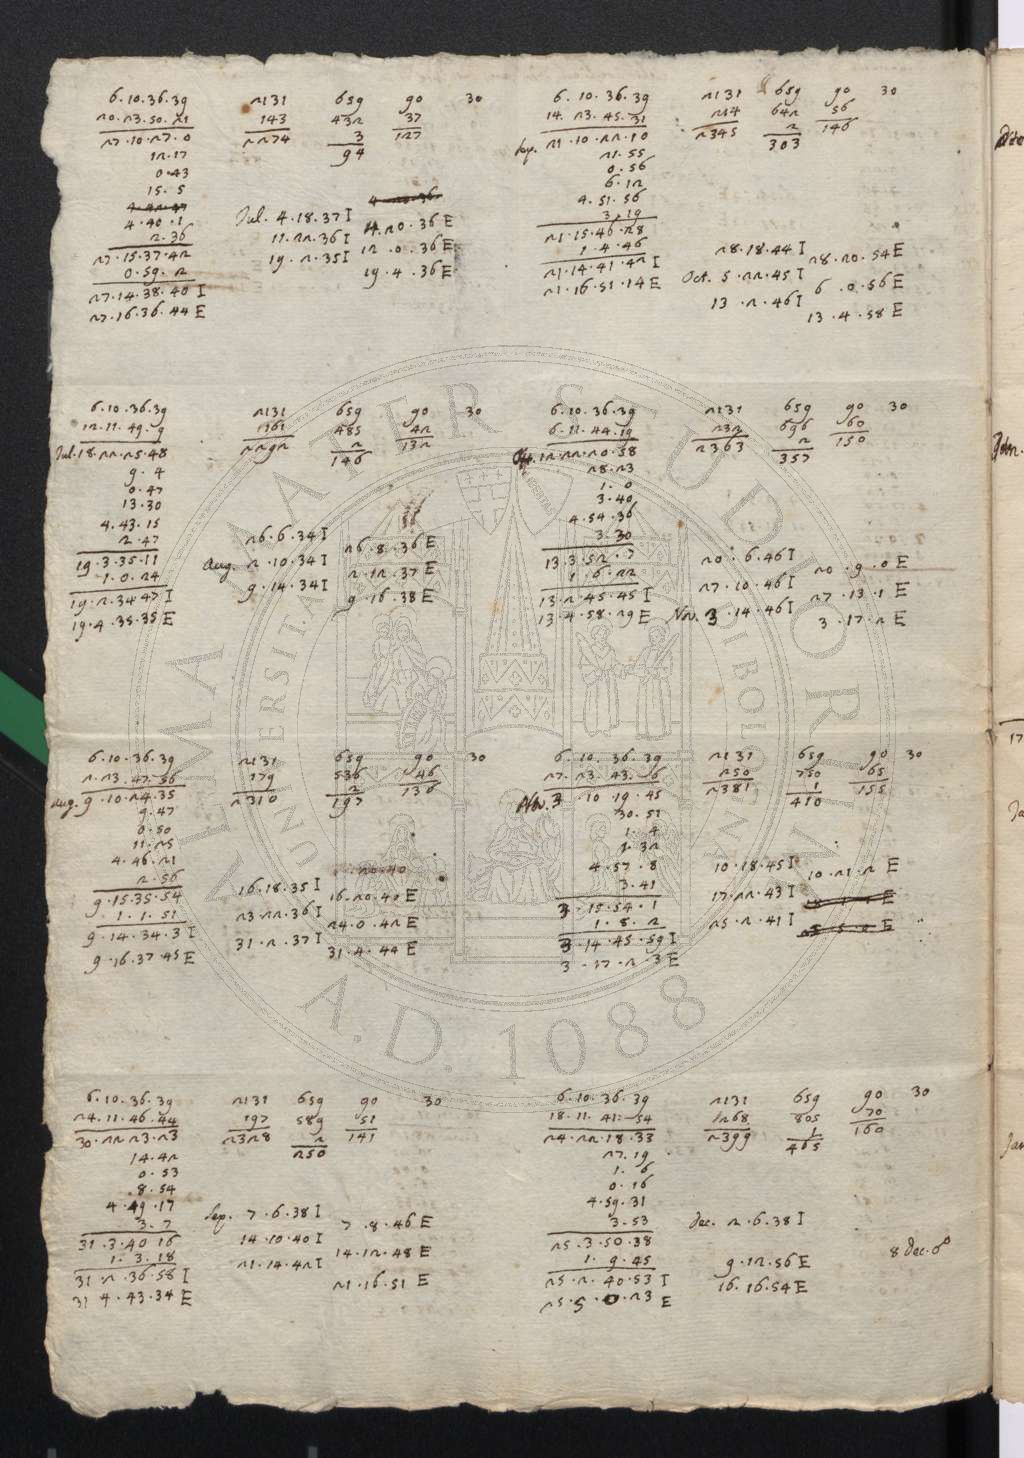 6.10.36.39 2131 659 90 30
20.23.50.21 143 432 37
27.10.27.0 2274 3 127
12.17 94
0.43
15.5
4.40.1 Jul. 4.18.37 I 4.20.36 E
2.36 11.22.36 I 12.0.36 E
27.15.37.42 19.2.35 I 19.4.36 E
0.59.2
27.14.38.40 I
27.16.36.44 E
6.10.36.39 2131 659 90 30
14.23.45.31 214 642 56
Sep. 21.10.22.10 2345 2 146
21.55 303
0.56
6.12
4.51.56
3.19
21.15.46.28
1.4.46 28.18.44 I 28.20.54 E
21.14.41.42 I Oct. 5.22.45 I 6.0.56 E
21.16.51.14 E 13.2.46 I 13.4.58 E
6.10.36.39 2131 659 90 30
12.11.49.9 161 485 42
Jul. 18.22.25.48 2292 2 132
9.4 146
0.47
13.30
4.43.15
2.47 26.6.34 I 26.8.36 E
19.3.35.11 Aug. 2.10.34 I 2.12.37 E
1.0.24 9.14.34 I 9.16.38 E
19.2.34 47 I
19.4.35.35 E
6.10.36.39 2131 659 90 30
6.11.44.19 232 696 60
Oct. 12.22.20.58 2363 2 150
28.23 357
1.0
3.40
4.54.36
3.30
13.3.52.7 20.6.46 I 20.9.0 E
1.6.22 27.10.46 I 27.13.1 E
13.2.45.45 I Nov. 3.14.46 I 3.17.2 E
13.4.58.29 E
6.10.36.39 2131 659 90 30
2.23.47.56 179 536 46
Aug. 9.10.24.35 2310 2 136
9.47 197
0.50
11.25
4.46.21
2.56 20.40
9.15.35.54 16.18.35 I 16.20.40 E
1.1.51 23.22.36 I 24.0.42 E
9.14.34.3 I 31.2.37 I 31.4.44 E
9.16.37.45 E
6.10.36.39 2131 659 90 30
27.23.43.6 250 750 65
Nov. 3.10.19.45 2381 1 155
30.51 410
1.4
1.32
4.57.8 10.18.45 I 10.21.2 E
3.41 17.22.43 I
3.15.54.1 25.2.41 I
1.8.2
3.14.45.59 I
3.17.2.3 E
6.10.36.39 2131 659 90 30
24.11.46.44 197 589 51
30.22.23.23 2328 2 141
14.42 250
0.53
8.54
4.49.17
3.7 Sep. 7.6.38 I 7.8.46 E
31.3.40 16 14.10.40 I 14.12.48 E
1.3.18 21.14.42 I 21.16.51 E
31.2.36.58 I
31 4.43.34 E
6.10.36.39 2131 659 90 30
18.11.41.54 268 805 70
24.22.18.33 2399 1 160
27.19 465
1.6
0.16
4.59.31
3.53 Dec. 2.6.38 I
25.3.50.38
1.9.45 9.12.56 E 8 Dec.
25.2.40.53 I 16.16.54 E
25.5.0.23 E
ALMA MATER STUDIORUM
UNIVERSITÀ DI BOLOGNA
A.D. 1088